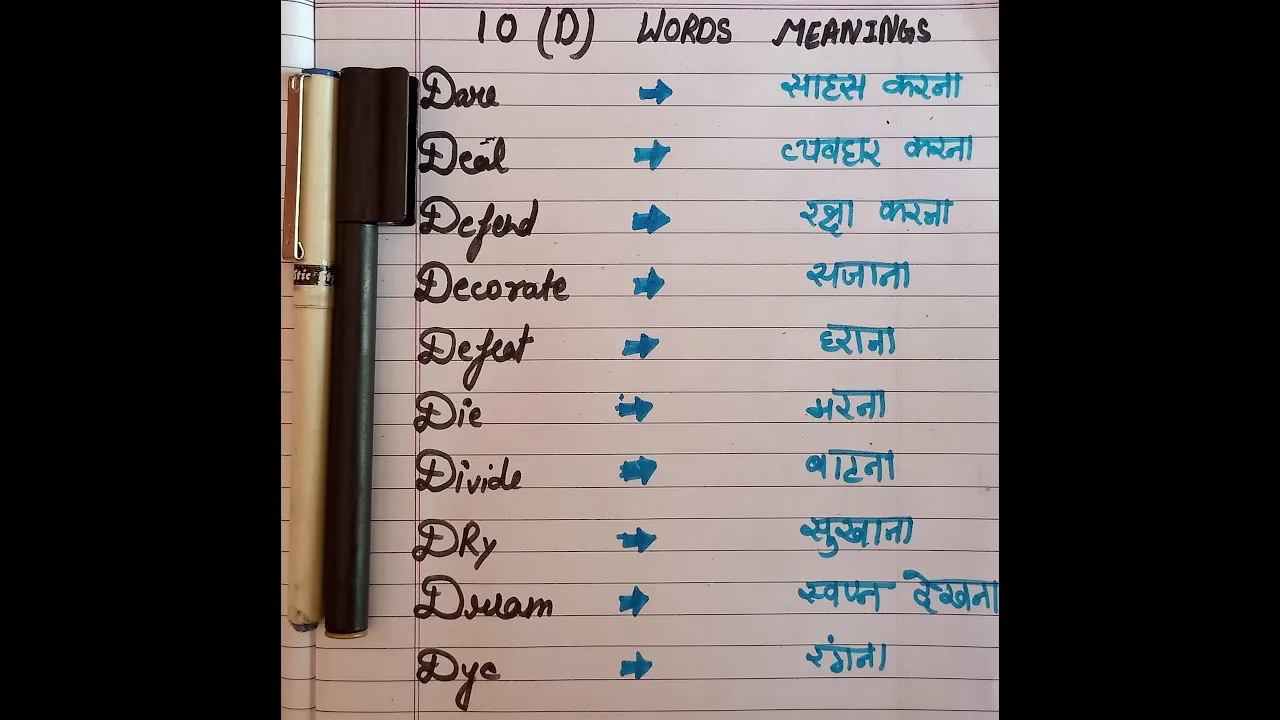 10 (D) WORDS MEANINGS
Dare → साहस करना
Deal → व्यवहार करना
Defend → रक्षा करना
Decorate → सजाना
Defeat → हराना
Die → मरना
Divide → बाटना
DRy → सुखाना
Dream → स्वप्न देखना
Dye → रंगना